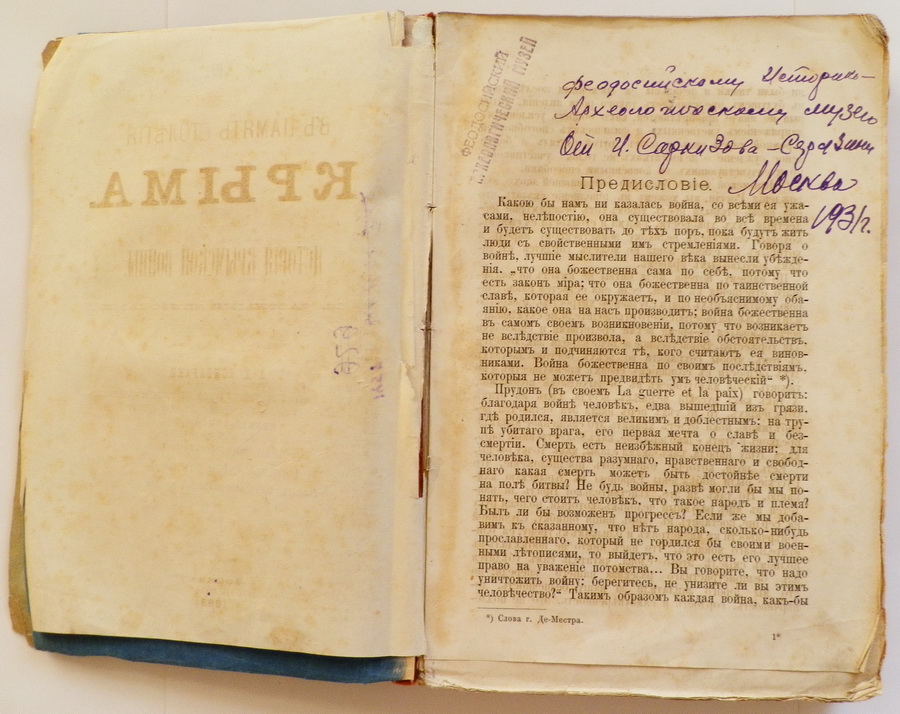 ВЪ ПАМЯТЬ СТОЛѢТІЯ
КРЫМА.
ИСТОРІЯ
ФЕОДОСИЙСКИЙ
АРХЕОЛОГИЧЕСКИЙ МУЗЕЙ
Феодосийскому Историко-
Археологическому музею
От И. Саркизова-Серазини
Москва
1931г.
Предисловіе.
Какою бы намъ ни казалась война, со всѣми ея ужа-
сами, нелѣпостію, она существовала во всѣ времена
и будетъ существовать до тѣхъ поръ, пока будутъ жить
люди съ свойственными имъ стремленіями. Говоря о
войнѣ, лучшіе мыслители нашего вѣка вынесли убѣжде-
нія, „что она божественна сама по себѣ, потому что
есть законъ міра; что она божественна по таинственной
славѣ, которая ее окружаетъ, и по необъяснимому оба-
янію, какое она на насъ производитъ; война божественна
въ самомъ своемъ возникновеніи, потому что возникаетъ
не вслѣдствіе произвола, а вслѣдствіе обстоятельствъ,
которымъ и подчиняются тѣ, кого считаютъ ея винов-
никами. Война божественна по своимъ послѣдствіямъ,
которыя не можетъ предвидѣть умъ человѣческій“ *).
Прудонъ (въ своемъ La guerre et la paix) говоритъ:
благодаря войнѣ человѣкъ, едва вышедшій изъ грязи,
гдѣ родился, является великимъ и доблестнымъ; на тру-
пѣ убитаго врага, его первая мечта о славѣ и без-
смертіи. Смерть есть неизбѣжный конецъ жизни; для
человѣка, существа разумнаго, нравственнаго и свобод-
наго какая смерть можетъ быть достойнѣе смерти
на полѣ битвы? Не будь войны, развѣ могли бы мы по-
нять, чего стоитъ человѣкъ, что такое народъ и племя?
Былъ ли бы возможенъ прогрессъ? Если же мы доба-
вимъ къ сказанному, что нѣтъ народа, сколько-нибудь
прославленнаго, который не гордился бы своими воен-
ными лѣтописями, то выйдетъ, что это есть его лучшее
право на уваженіе потомства... Вы говорите, что надо
уничтожить войну; берегитесь, не унизите ли вы этимъ
человѣчество?“ Такимъ образомъ каждая война, какъ-бы
*) Слова г. Де-Местра.
1*